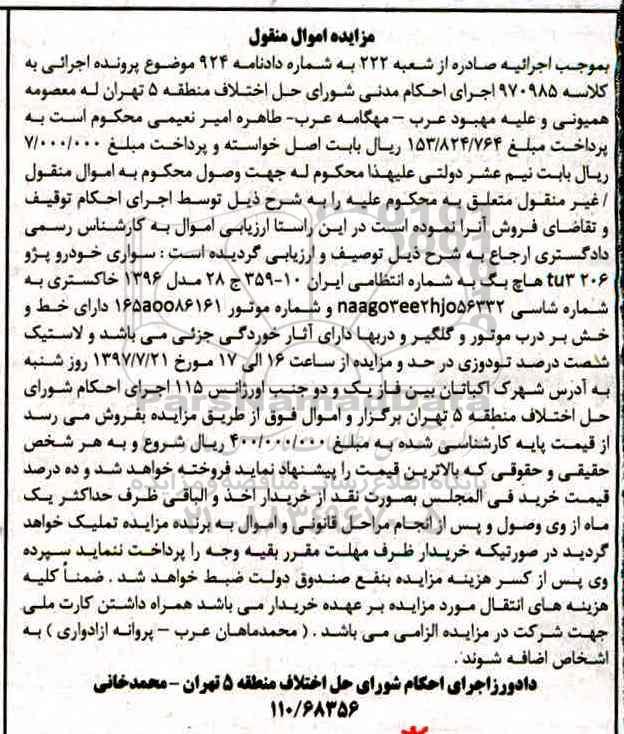 مزایده اموال منقول
بموجب اجرائیه صادره از شعبه ۲۲۲ به شماره دادنامه ۹۲۴ موضوع پرونده اجرائی به
کلاسه ۹۷۰۹۸۵ اجرای احکام مدنی شورای حل اختلاف منطقه ۵ تهران له معصومه
همیونی و علیه مهبود عرب – مهگامه عرب- طاهره امیر نعیمی محکوم است به
پرداخت مبلغ ۱۵۳/۸۲۴/۷۶۴ ریال بابت اصل خواسته و پرداخت مبلغ ۷/۰۰۰/۰۰۰
ریال بابت نیم عشر دولتی علیهذا محکوم له جهت وصول محکوم به اموال منقول
/ غیر منقول متعلق به محکوم علیه را به شرح ذیل توسط اجرای احکام توقیف
و تقاضای فروش آنرا نموده است در این راستا ارزیابی اموال به کارشناس رسمی
دادگستری ارجاع به شرح ذیل توصیف و ارزیابی گردیده است : سواری خودرو پژو
۲۰۶ tu۳ هاچ بک به شماره انتظامی ایران ۱۰-۳۵۹ ج ۲۸ مدل ۱۳۹۶ خاکستری به
شماره شاسی naago۳ee۲hjo۵۶۳۳۲ و شماره موتور ۱۶۵aoo۸۶۱۶۱ دارای خط و
خش بر درب موتور و گلگیر و دربها دارای آثار خوردگی جزئی می باشد و لاستیک
شصت درصد تودوزی در حد و مزایده از ساعت ۱۶ الی ۱۷ مورخ ۱۳۹۷/۷/۲۱ روز شنبه
به آدرس شهرک اکباتان بین فاز یک و دو جنب اورژانس ۱۱۵ اجرای احکام شورای
حل اختلاف منطقه ۵ تهران برگزار و اموال فوق از طریق مزایده بفروش می رسد
از قیمت پایه کارشناسی شده به مبلغ ۴۰۰/۰۰۰/۰۰۰ ریال شروع و به هر شخص
حقیقی و حقوقی که بالاترین قیمت را پیشنهاد نماید فروخته خواهد شد و ده درصد
قیمت خرید فی المجلس بصورت نقد از خریدار اخذ و الباقی ظرف حداکثر یک
ماه از وی وصول و پس از انجام مراحل قانونی و اموال به برنده مزایده تملیک خواهد
گردید در صورتیکه خریدار ظرف مهلت مقرر بقیه وجه را پرداخت ننماید سپرده
وی پس از کسر هزینه مزایده بنفع صندوق دولت ضبط خواهد شد . ضمناً کلیه
هزینه های انتقال مورد مزایده بر عهده خریدار می باشد همراه داشتن کارت ملی
جهت شرکت در مزایده الزامی می باشد . ( محمدماهان عرب – پروانه ازادواری ) به
اشخاص اضافه شوند .
دادورزاجرای احکام شورای حل اختلاف منطقه ۵ تهران – محمدخانی
۱۱۰/۶۸۳۵۶